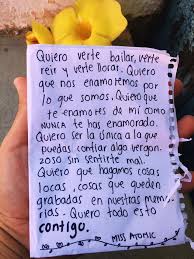 Quiero verte bailar, verte
reír y verte llorar. Quiero
que nos enamoremos por
lo que somos. Quiero que
te enamores de mí como
NUNCA te has enamorado.
Quiero ser la única a la que
puedas confiar algo vergon-
zoso sin sentirte mal.
Quiero que hagamos cosas
locas, cosas que queden
grabadas en nuestras memo-
rias. Quiero todo esto
contigo.
MISS ATOMIC